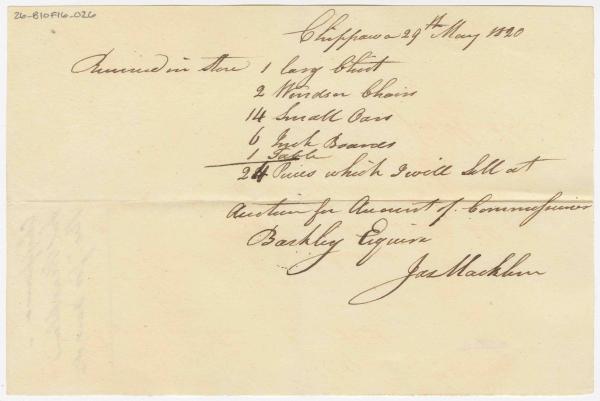 26-B10F16-026
Chippawa 29th May 1820
Received in Store 1 Larg Chist
2 Windsor Chairs
14 Small Oars
6 Inch Boards
1 Table
24 Pieces which I will Sell at
Auction for Account of Commissioner
Barkley Esquire
Jas Macklem